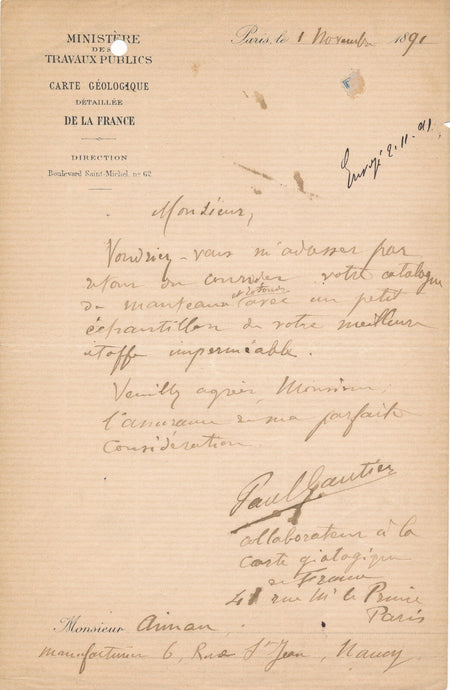 MINISTÈRE
DES
TRAVAUX PUBLICS
CARTE GÉOLOGIQUE
DÉTAILLÉE
DE LA FRANCE
DIRECTION
Boulevard Saint-Michel, nº 62
Paris, le 1 Novembre 1891
Envoyé 2.11.91.
Monsieur,
Voudriez-vous m'adresser par
retour du courrier votre catalogue
de manteaux et avec un petit
échantillon de votre meilleure
étoffe imperméable.
Veuillez agréer, Monsieur,
l'assurance de ma parfaite
considération.
Paul Gautier
collaborateur à la
Carte géologique
de France
41 rue Mr le Prince
Paris
Monsieur
manufacturier 6, Rue St Jean, Nancy.